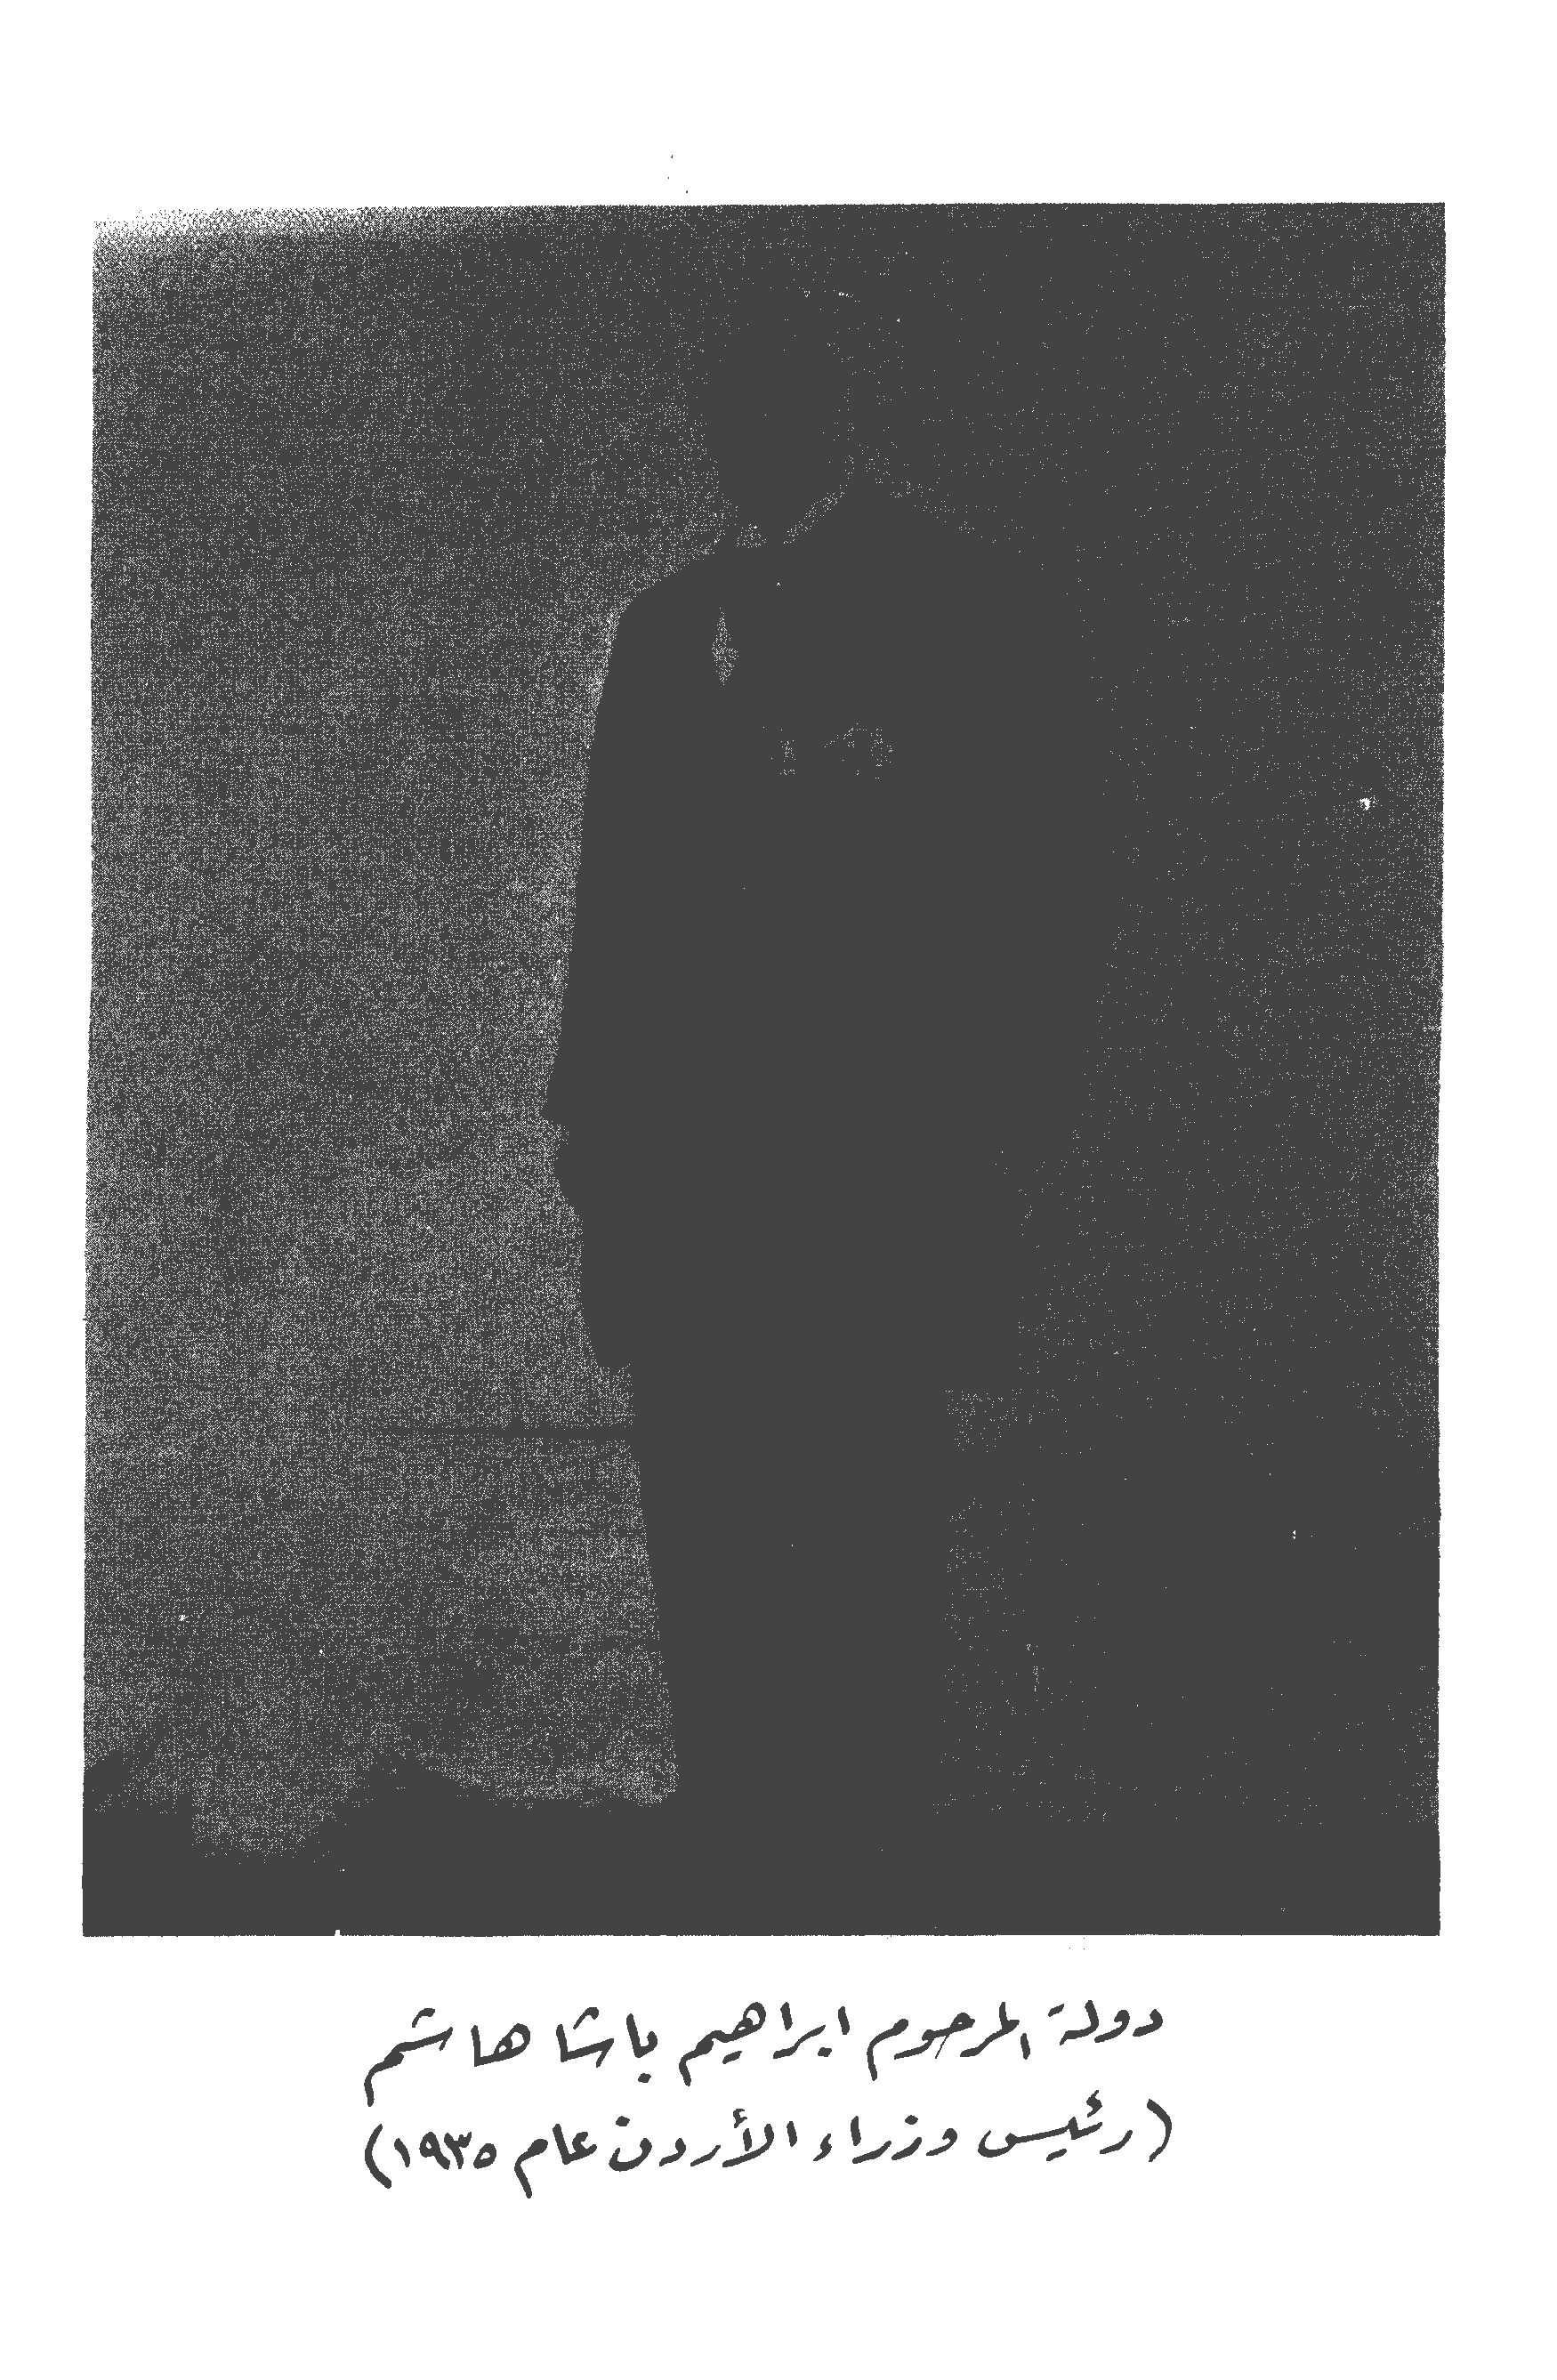 دولة المرحوم ابراهيم باشا هاشم
(رئيس وزراء الأردن عام ١٩٣٥)